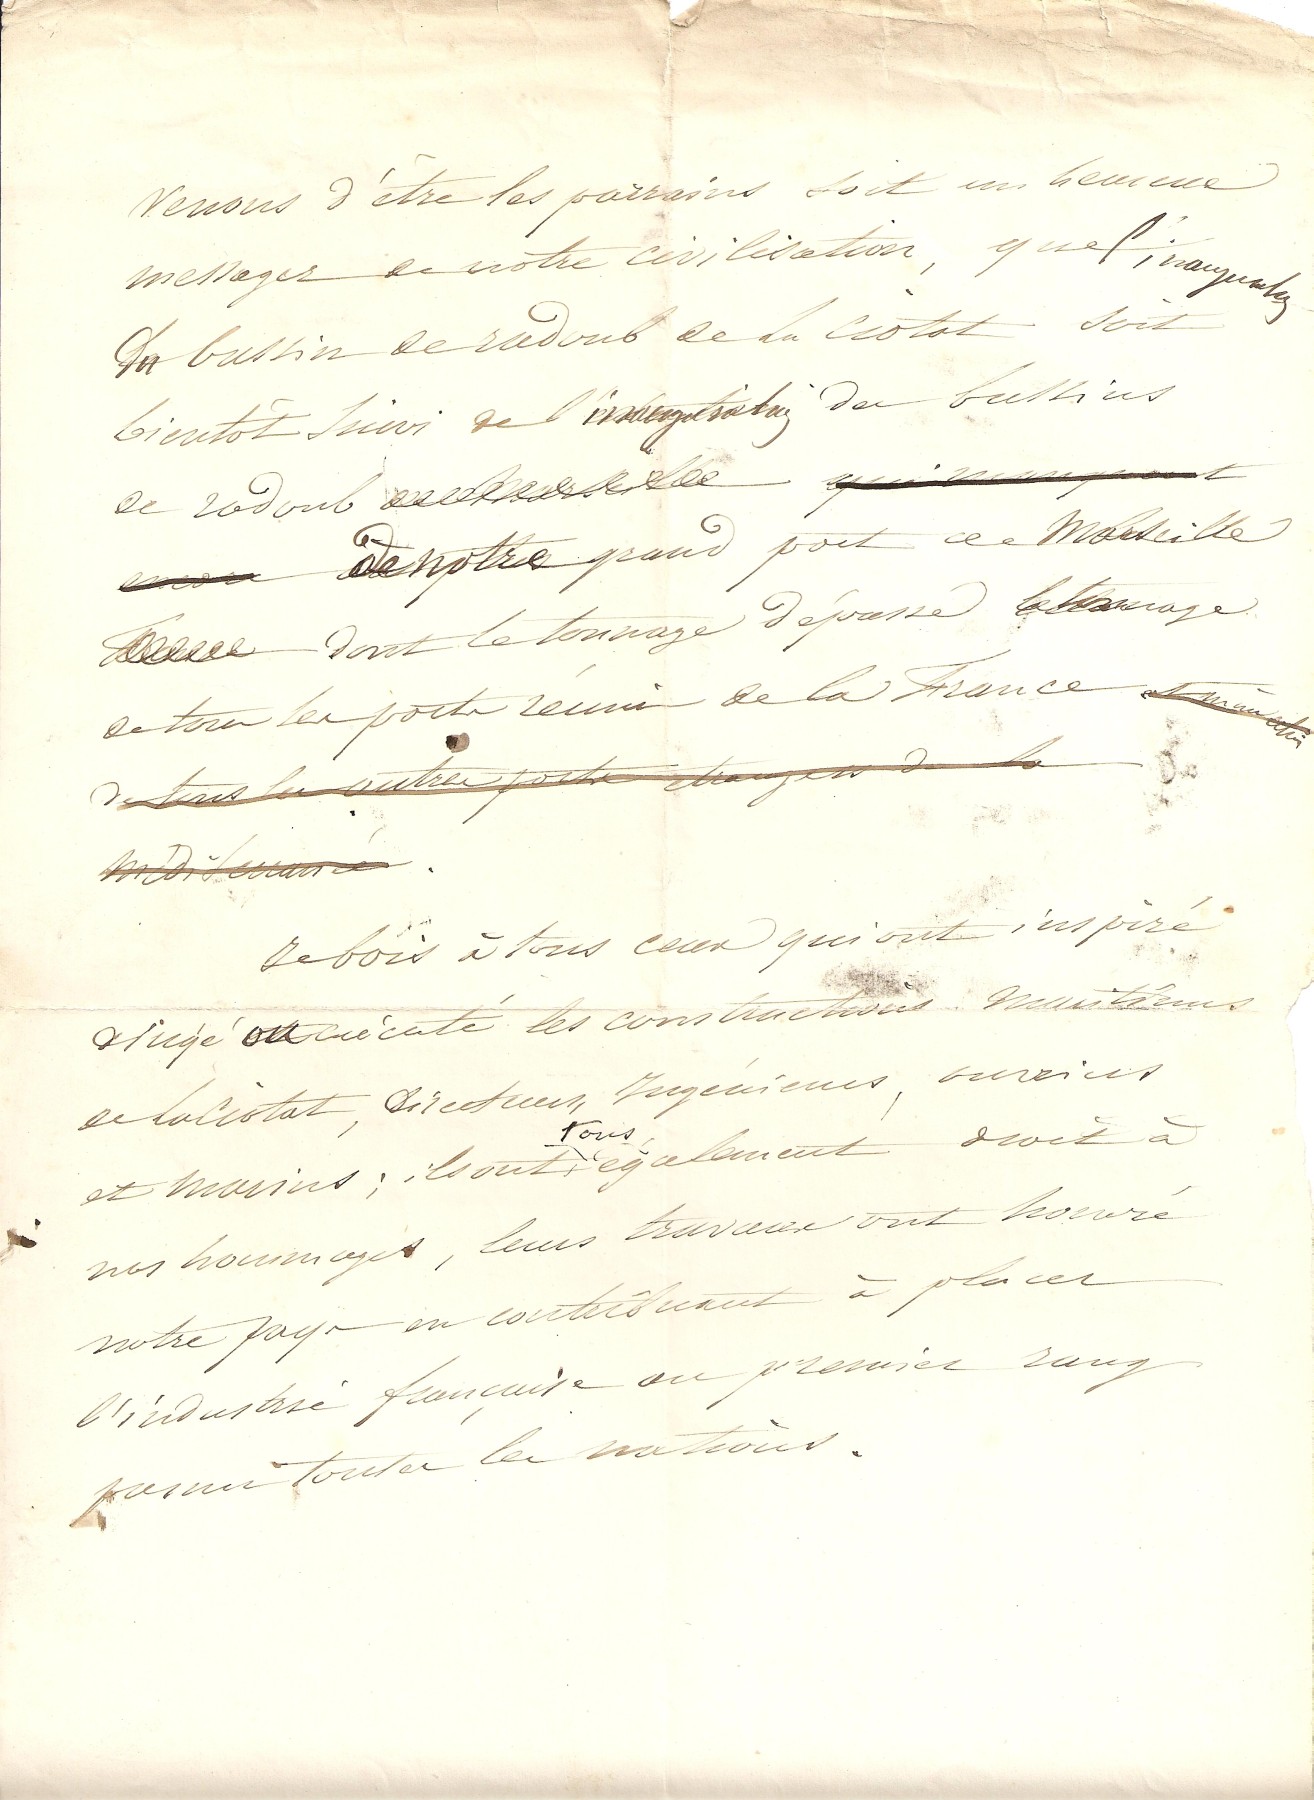 venons d'être les parrains soit un heureux
messager de notre civilisation, que l'inauguration
du bassin de radoub de La Ciotat soit
bientôt suivi de l'inauguration des bassins
de radoub de Marseille qui manquent
encore de notre grand port de Marseille
dont le tonnage dépasse le tonnage
de tous les ports réunis de la France et même celui
de tous les autres ports étrangers de la
méditerranée.
Je bois à tous ceux qui ont inspiré
dirigé ou exécuté les constructions maritimes
de La Ciotat, Directeurs, Ingénieurs, ouvriers
et marins ; ils ont tous également droit à
nos hommages, leurs travaux ont honoré
notre pays en contribuant à placer
l'industrie française au premier rang
parmi toutes les nations.